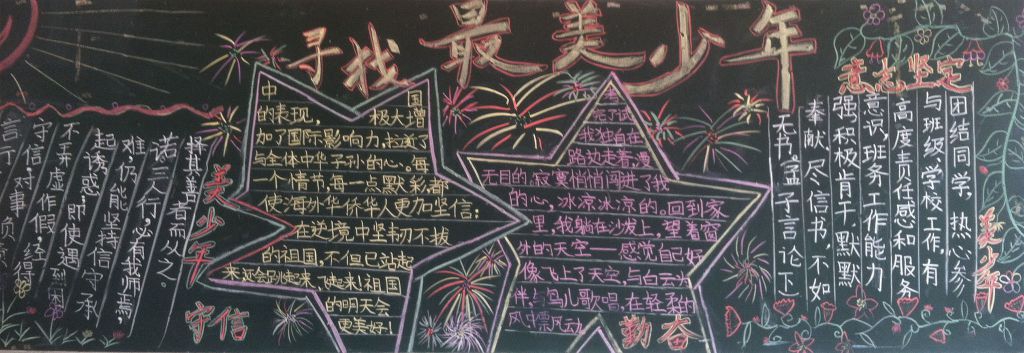 寻找最美少年
言行,对事负责
守信,对
不弄虚作假,经得
起诱惑,即使遇到困
难,仍能坚持信守承
诺。三人行,必有我师焉,
择其善者而从之。
美少年
守信
中国
的表现,极大增
加了国际影响力,拉近了
与全体中华子孙的心。每
一个情节,每一点默彩,都
使海外华侨华人更加坚信:
在逆境中坚韧不拔
的祖国,不但已站起
来还会引起来、使起!祖国
的明天会
更美好!
我独自在
路边走着,漫
无目的,寂寞悄悄闯进了我
的心,冰凉冰凉的。回到家
里,我躺在沙发上,望着窗
外的天空——感觉自己好
像飞上了天空,与白云为
伴,与鸟儿歌唱,在轻柔的
风中飘风动
勤奋
意志坚定
团结同学,热心参
与班级,学校工作,有
高度责任感和服务
意识,班务工作能力
强,积极肯干,默默
奉献。尽信书,不如
无书。(孟子言论下)
美少年